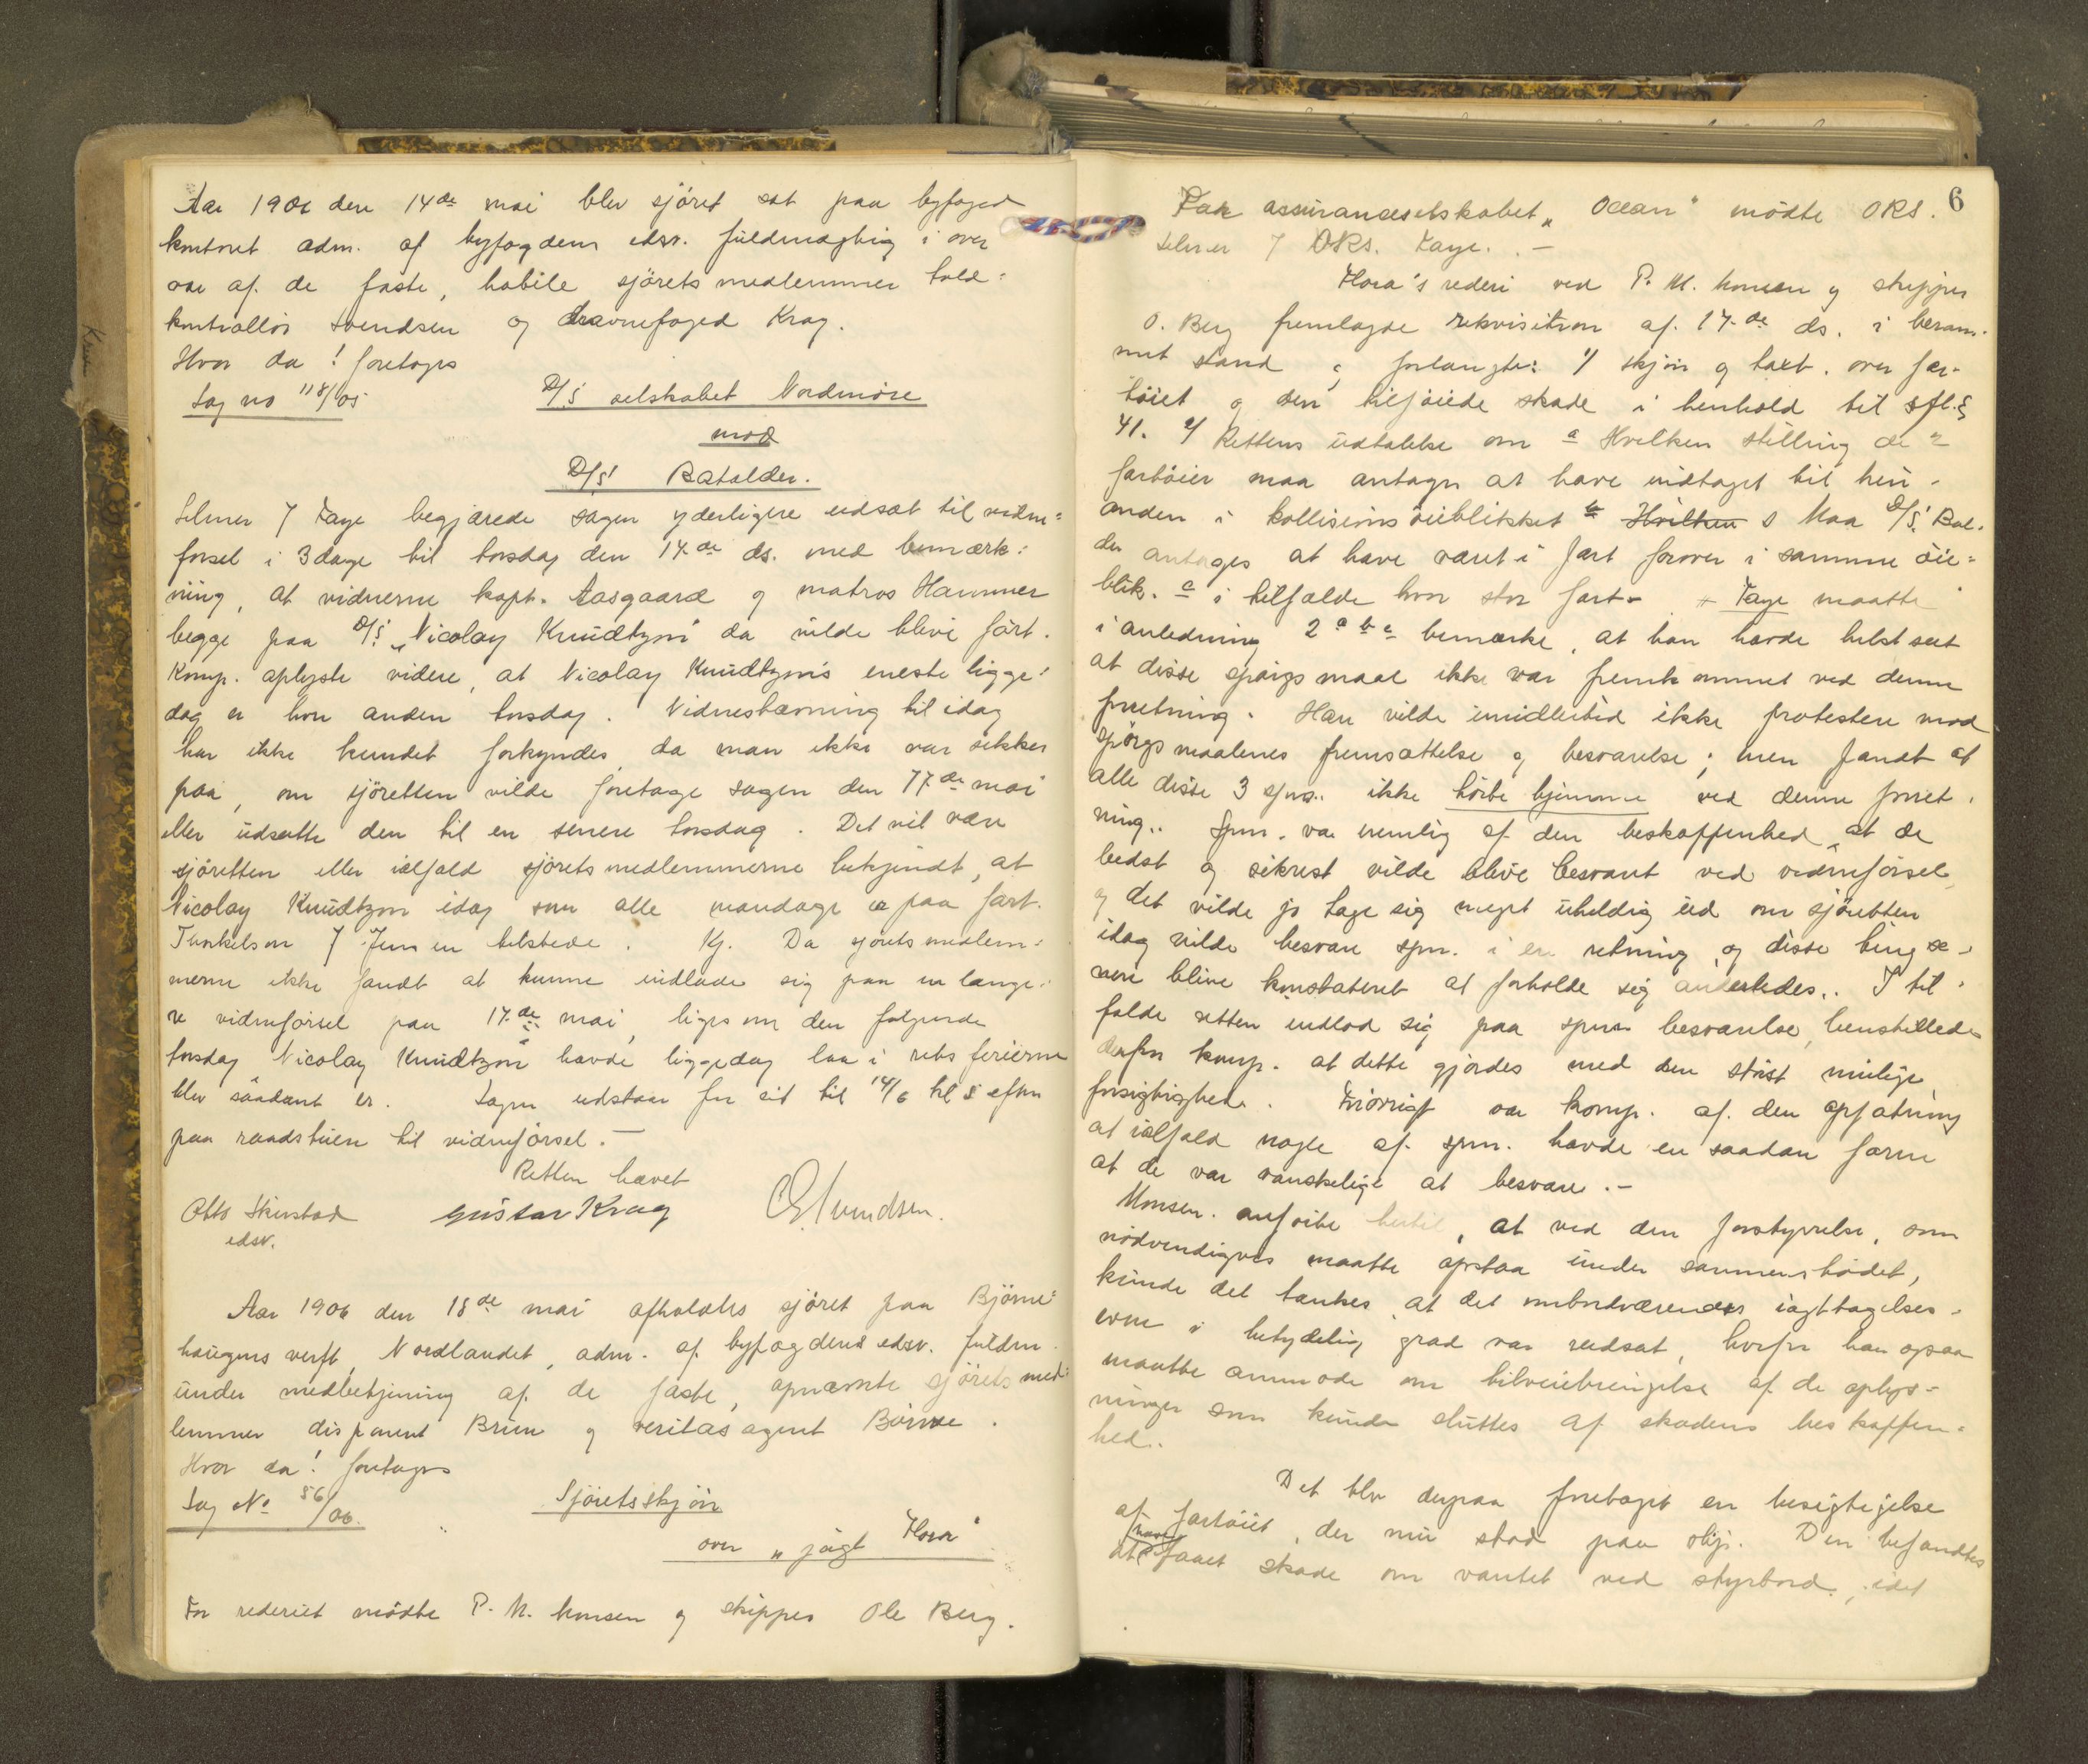 Aar 1906 den 14de mai blev sjöret sat paa byfoged
kontoret adm. af byfogdens edsv. fuldmægtig i over
vær af de faste, habile sjörets medlemmer told=
kontrollör Svendsen og havnefoged Krag.
Hvor da! foretoges
Sag no 118/05
D/S selskabet Nordmöre
mod
D/S Batalder.
Selmer f Faye begjærede sagen yderligere udsat til vidne=
forsel i 3 dage til torsdag den 17de ds. med bemærk=
ning, at vidnerne kapt. Aasgaard og matros Hammer
begge paa D/S „Nicolay Knudtzon" da vilde blive fört.
Komp. oplyste videre, at Nicolay Knudtzon's eneste ligge=
dag er hver anden torsdag. Vidnestævning til idag
har ikke kundet forkyndes, da man ikke var sikker
paa, om sjöretten vilde foretage sagen den 17de mai
eller udsætte den til en senere torsdag. Det vil være
sjöretten eller ialfald sjörets medlemmerne bekjendt, at
Nicolay Knudtzon idag som alle mandage er paa fart.
Thorkelson f Jensen tilstede. Kj. Da sjörets medlem=
merne ikke fandt at kunne indlade sig paa en længe=
re vidneförsel paa 17de mai, ligesom den folgende
torsdag Nicolay Knudtzon havde liggedag laa i rets ferierne
blev saadant er. Sagen udstaar for sit til 14/6 kl 5 eftm
paa raadstuen til vidneförsel. —
Retten hævet
Otto Skirstad Gustav Krag C. Svendsen.
edsv.
Aar 1906 den 18de mai afholdtes sjöret paa Björne=
haugens verft, Nordlandet, adm. af byfogdens edsv. fuldm.
under medbetjening af de faste, opnævnte sjörets med=
lemmer disponent Brun og veritasagent Börne.
Hvor da! foretoges
Sag No 56/06.
Sjöretsskjön
over „jagt Flora"
For rederiet mödte P. M. Monsen og skipper Ole Berg.
6
For assuranceselskabet „Ocean" mödte ORS.
Selmer f ORS. Faye. —
Flora's rederi ved P. M. Monsen og skipper
O. Berg fremlagde rekvisition af 17de ds. i beram-
met stand og forlangte: 1/ skjön og taxt. over far-
töiet og den tilföiede skade i henhold til sfl. §
41. 2/ Rettens udtalelse om a Hvilken stilling de 2
fartöier maa antages at have indtaget til hin-
anden i kollisions öieblikket b Hvilken s Maa D/S Bat.
der antages at have været i fart forover i samme öie=
blik. c i tilfælde hvor stor fart — Faye maatte
i anledning 2 a b c bemærke, at han havde helst seet
at disse spörgsmaal ikke var fremkommet ved denne
forretning. Han vilde imidlertid ikke protestere mod
spörgsmaalenes fremsættelse og besvarelse; men fandt at
alle disse 3 spm. ikke hörte hjemme ved denne forret-
ning. Spm. var nemlig af den beskaffenhed at de
bedst og sikrest vilde blive besvaret ved vidneförsel,
og det vilde jo tage sig meget uheldig ud om sjöretten
idag vilde besvare spm. i en retning, og disse ting se-
nere blive konstateret at forholde sig anderledes. I til-
fælde retten indlod sig paa spms besvarelse, henstillede
derfor komp. at dette gjordes med den störst mulige
forsigtighed. Forövrigt var komp. af den opfatning
at ialfald nogle af spm. havde en saadan form
at de var vanskelige at besvare. —
Monsen. anförte hertil, at ved den forstyrrelse, som
nödvendigvis maatte opstaa under sammenstödet,
kunde det tænkes at det ombordværendes iagttagelses-
evne i betydelig grad var nedsat, hvorfor han ogsaa
maatte anmode om tilveiebringelse af de oplys-
ninger som kunde sluttes af skadens beskaffen=
hed.
Det blev derpaa foretaget en besigtigelse
af fartöiet, der nu stod paa slip. Den befandtes
at have faaet skade om vantet ved styrbord, idet